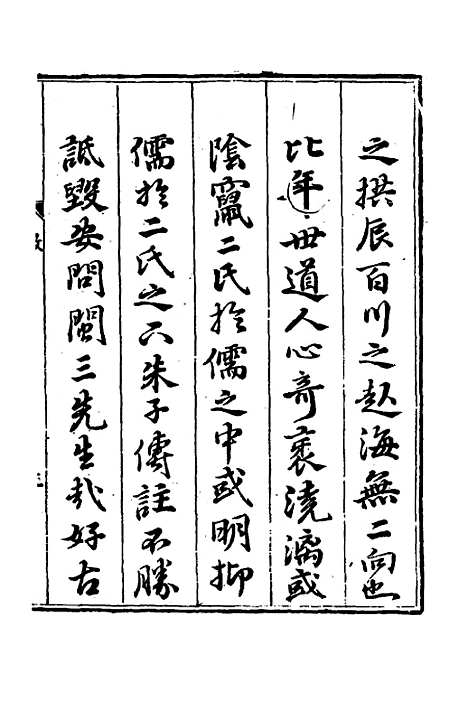 之拱辰百川之赴海無二向也
比年世道人心奇衺澆漓或
陰竄二氏於儒之中或明抑
儒於二氏之下朱子傳註不勝
詆毀安問閩三先生哉好古
三